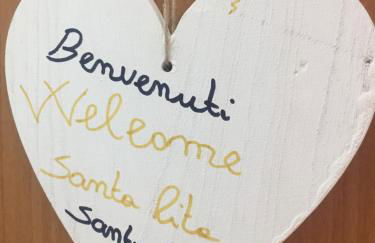 Benvenuti
Welcome
Santa Rita